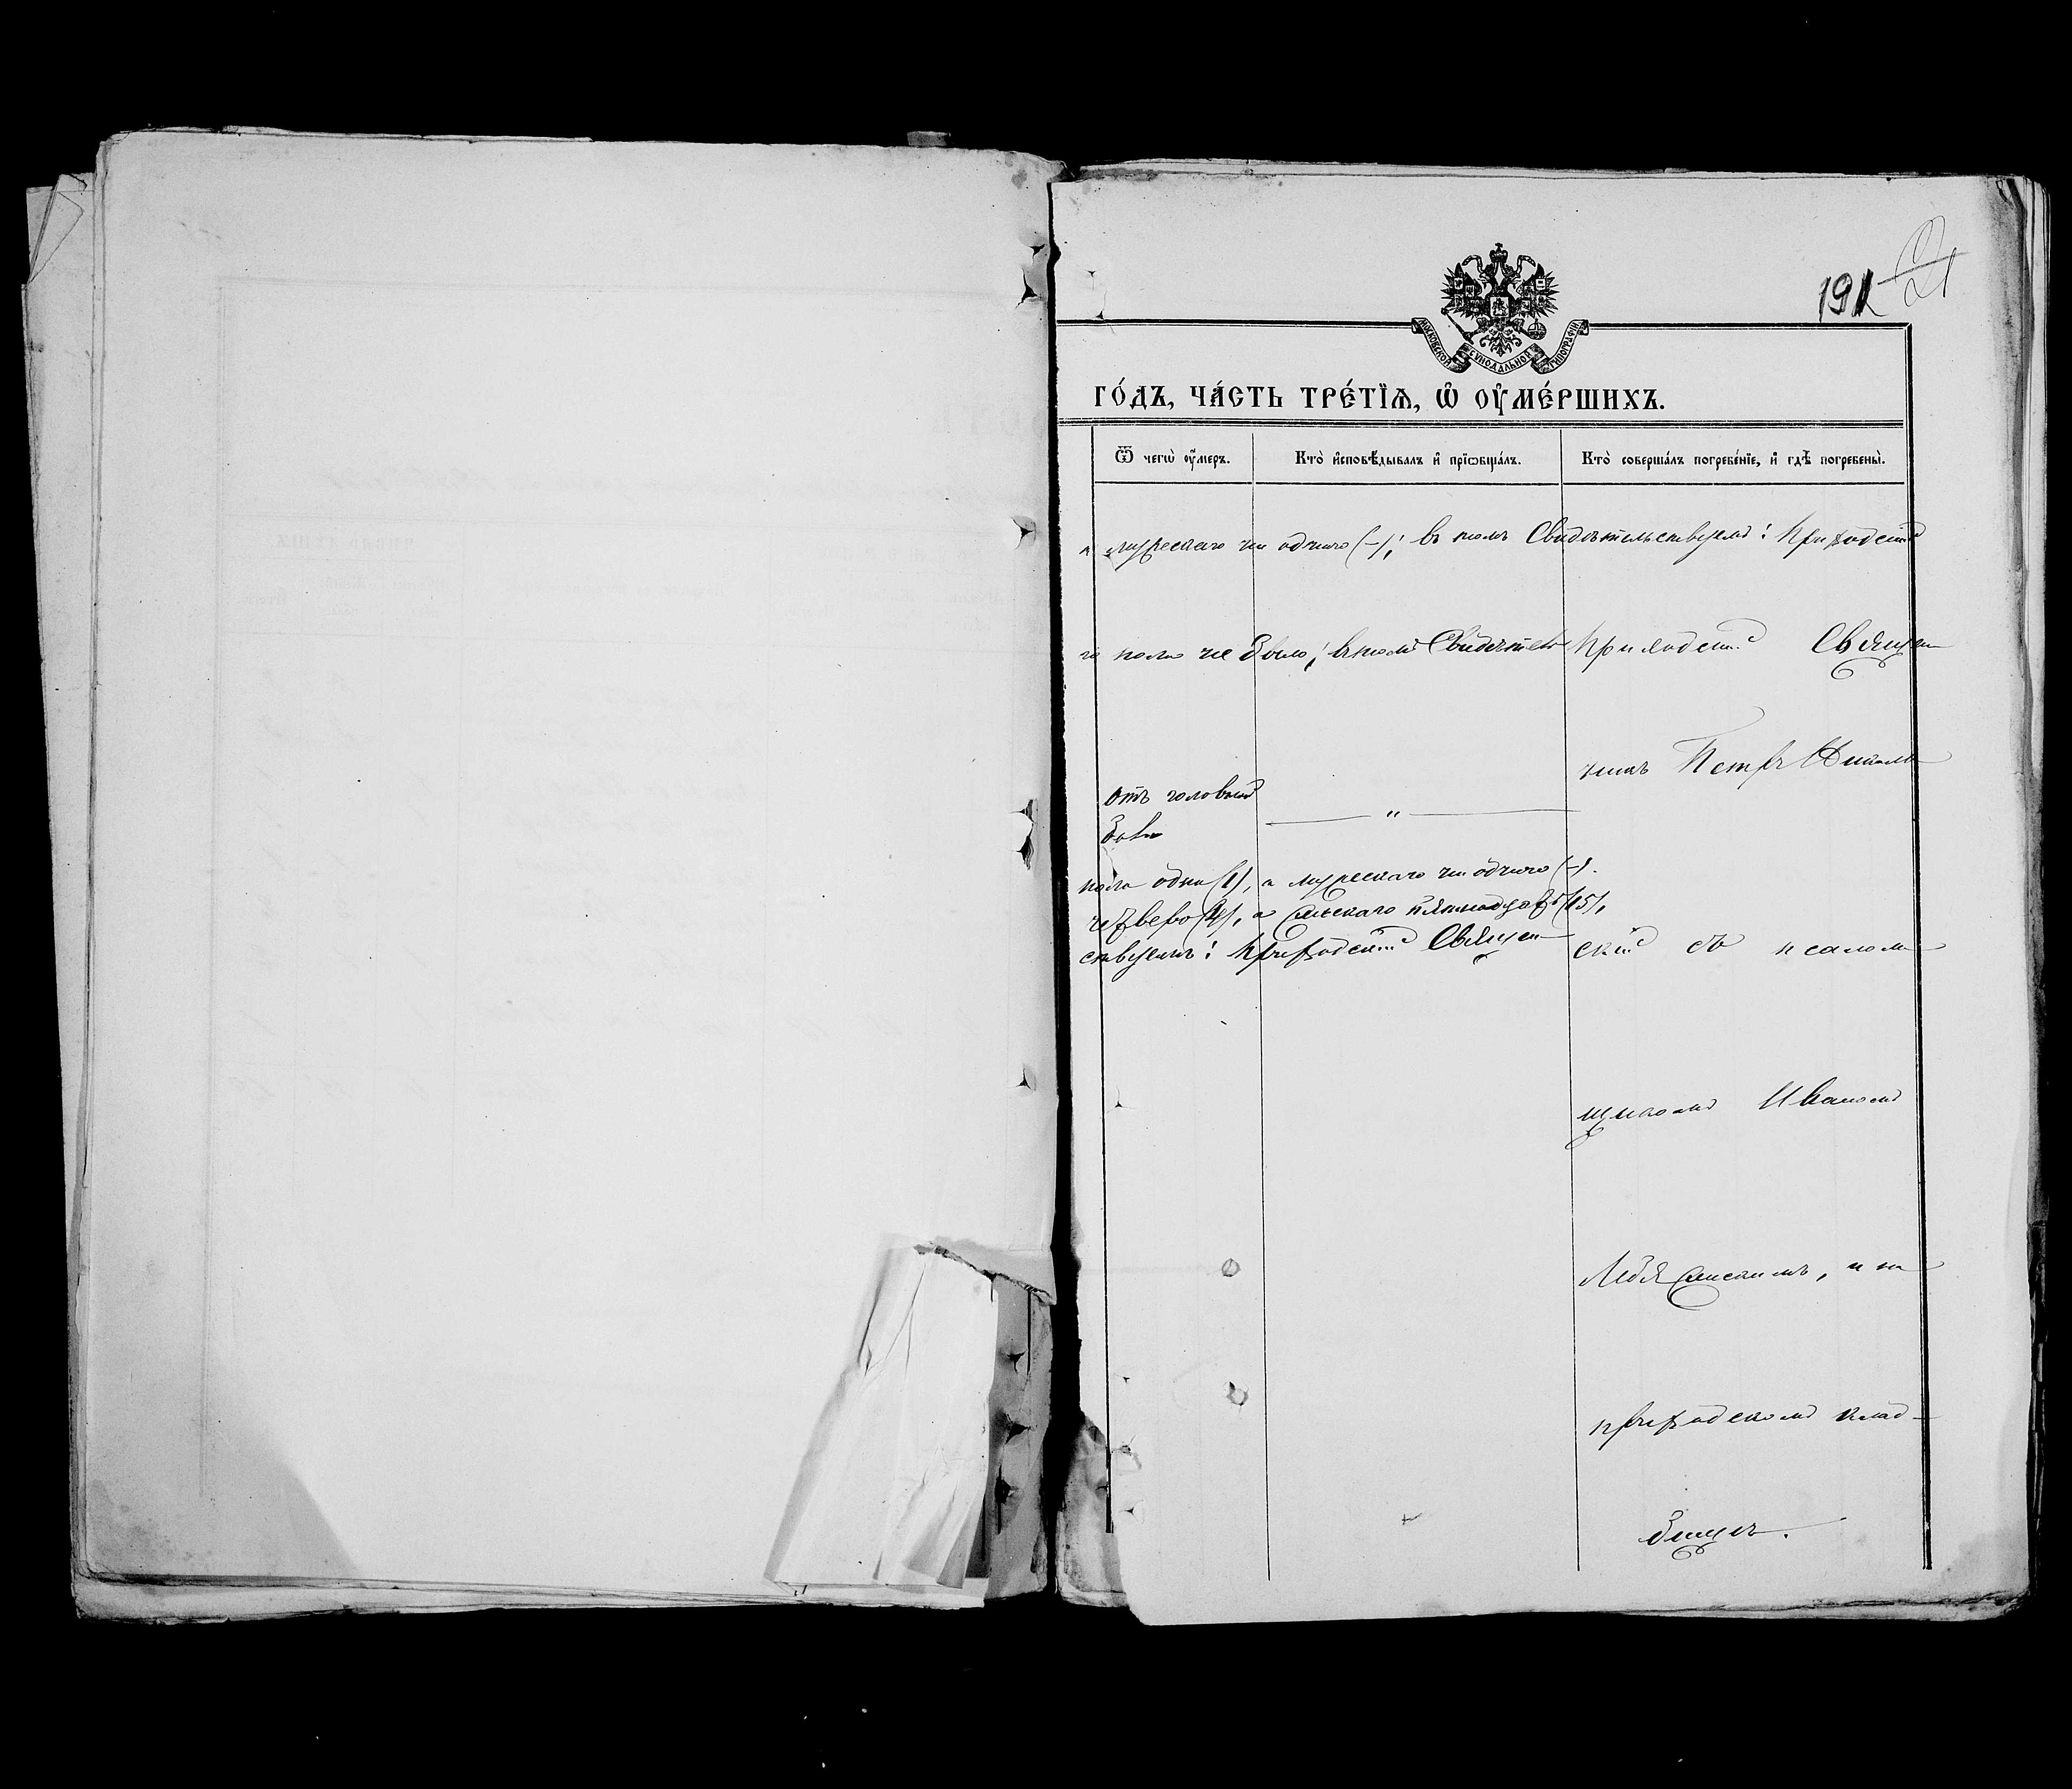 191
21
МОСКОВСКОЙ СѴНОДАЛЬНОЙ ТИПОГРАФІИ
ГО́ДЪ, ЧА́СТЬ ТРЕ́ТІѦ, Ѡ҆ ОУ҆МЕ́РШИХЪ.
Ѿ чегѡ̀ оу҆́меръ.
Кто̀ и҆сповѣ́дывалъ и҆ прїѡбща́лъ.
Кто̀ соверша́лъ погребе́нїе, и҆ гдѣ̀ погребены̀.
а мужескаго ни одного (–); въ томъ свидѣтельствуемъ: Приходскій
го пола не было; въ томъ Свидѣтель
Приходскій Священ
никъ Петръ
отъ головной
боли
"
пола одна (1), а мужескаго ни одного (–).
четверо (4), а женскаго пятнадцать (15),
ствуемъ: Приходскій Священ
скій съ псалом
щикомъ Иваномъ
и на
приходскомъ клад-
бищѣ.